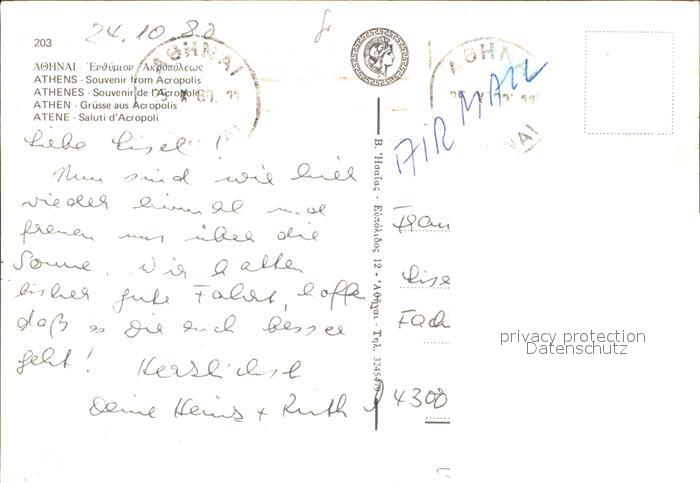 24.10.80
203
ΑΘΗΝΑΙ · Ἐνθύμιον Ἀκροπόλεως
ATHENS · Souvenir from Acropolis
ATHENES · Souvenir de l'Acropole
ATHEN · Grüsse aus Acropolis
ATENE · Saluti d'Acropoli
ΑΘΗΝΑΙ
Liebe Gisel !
Nun sind wir hier
wieder einmal und
freuen uns über die
Sonne. Wir hatten
bisher gute Fahrt, hoffen
daß es Dir auch besser
geht! Herzlichst
Deine Heinz + Ruth
Β. Ἡσαΐας · Εὐπόλιδος 12 - Ἀθῆναι · Τηλ.
ΑΘΗΝΑΙ
AIR MAIL
Frau
Gise
Fach
4300
privacy protection
Datenschutz